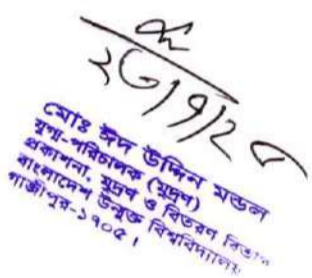 মোঃ ঈদ উদ্দিন মন্ডল
যুগ্ম-পরিচালক (মুদ্রণ)
প্রকাশনা, মুদ্রণ ও বিতরণ বিভাগ
বাংলাদেশ উন্মুক্ত বিশ্ববিদ্যালয়
গাজীপুর-১৭০৫।